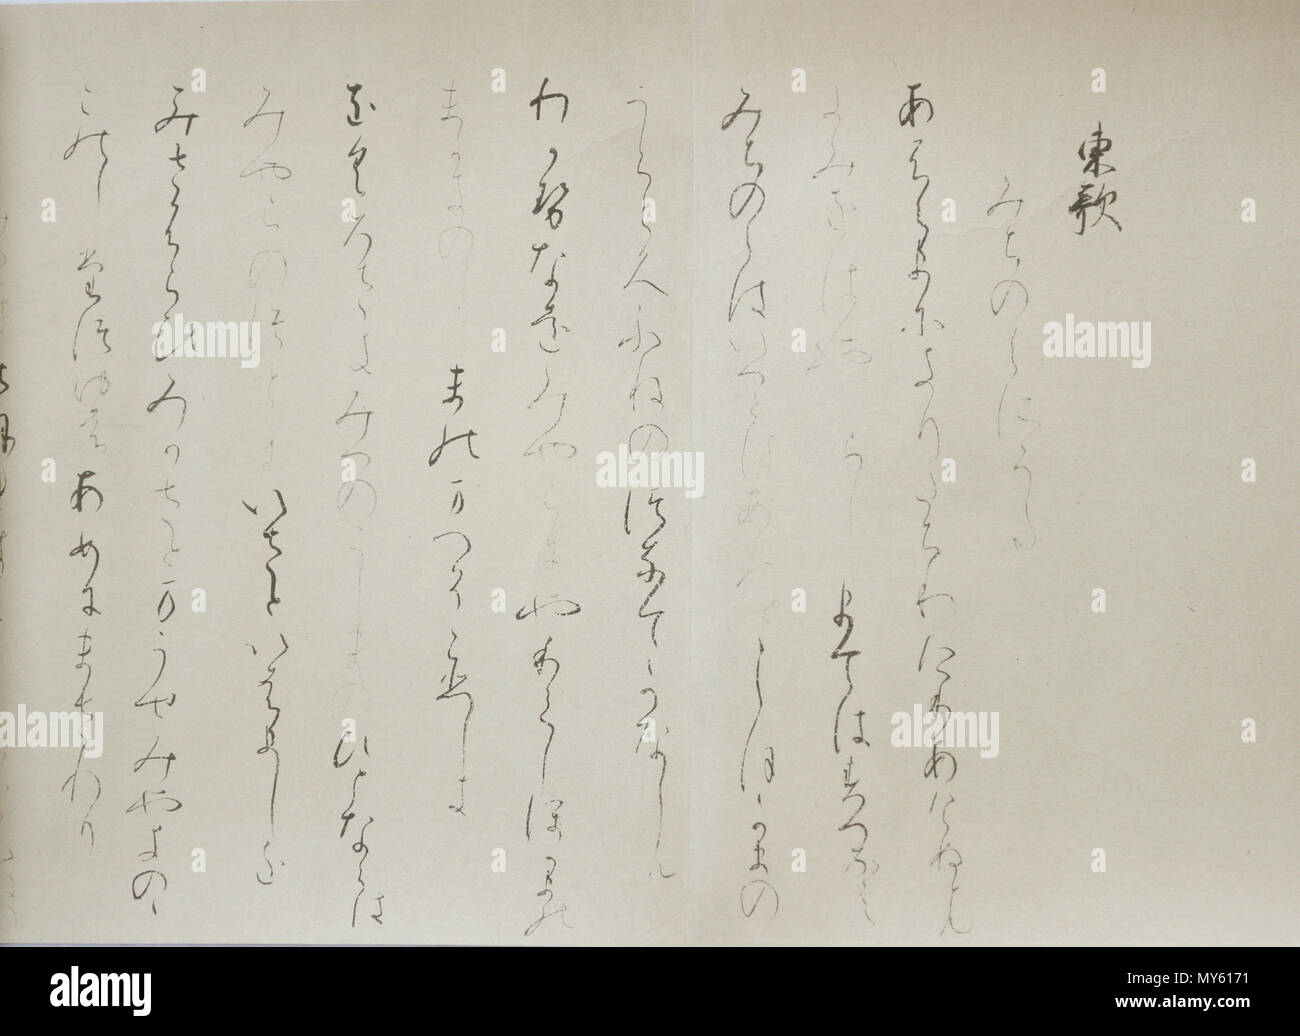 東歌
みちのくにうた
あふくまにきりたちわたりあけぬとも
きみをはやらし まてはすへなし
みちのくはいつくはあれとしほかまの
うらこくふねのつなてかなしも
わかせなをみやこにやりてしほかまの
まかきのしまのまつそ恋しき
をくろさきみつのこしまのひとならは
みやこのつとに いさといはましを
みさふらひみかさと万うせみやきのゝ
このしたつゆは あめにまされり
alamy
Image ID: MY6171
www.alamy.com